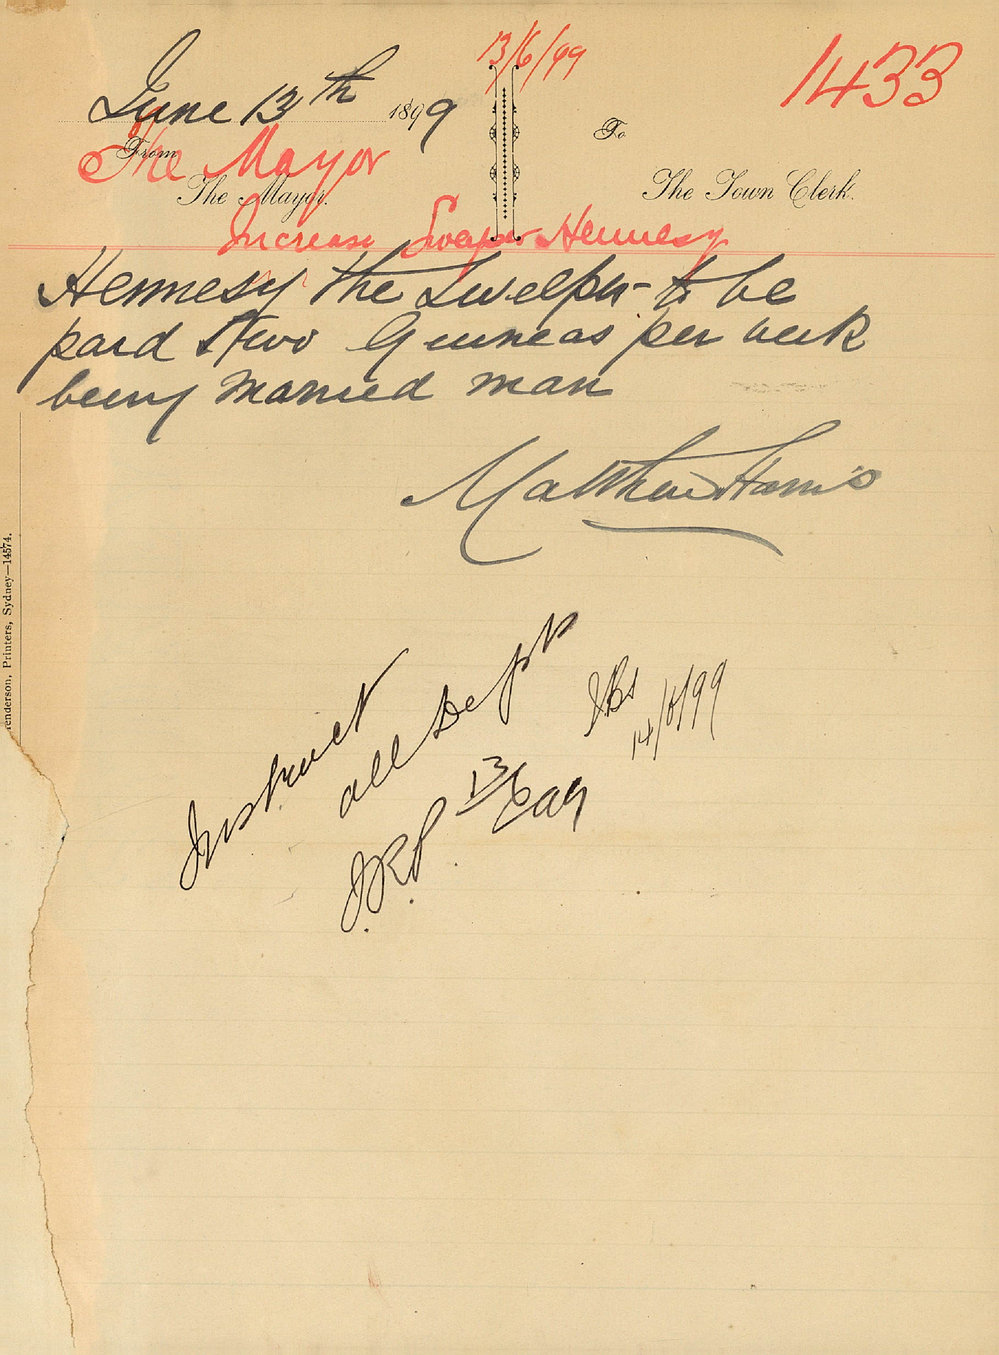 13/6/99
1433
June 13th 1899
From
To
The Mayor
The Mayor.
The Town Clerk.
Increase Sweeper Hennesy
Hennesy the Sweeper to be
paid two Guineas per week
being married man
Matthew Harris
Henderson, Printers, Sydney—14574.
Instruct
all Depts
13/6/99
14/6/99